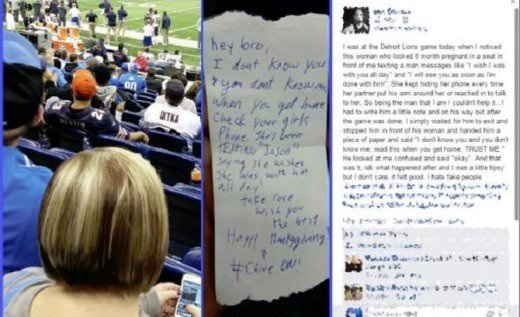 DITKA
hey bro,
I dont know you
& you dont know me.
When you get home
Check your girls
Phone. She's been
TEXTING "Jason"
saying she wishes
she was with him
all day!
take care
wish you
the best
Happy Thanksgiving!
#Chive ON!
I was at the Detroit Lions game today when I noticed
this woman who looked 8 month pregnant in a seat in
front of me texting a man messages like "I wish I was
with you all day" and "I will see you as soon as I'm
done with him". She kept hiding her phone every time
her partner put his arm around her or reached in to talk
to her. So being the man that I am I couldn't help it...I
had to write him a little note and on his way out after
the game was done, I simply waited for him to exit and
stopped him in front of his woman and handed him a
piece of paper and said "I don't know you and you don't
know me, read this when you get home. TRUST ME."
He looked at me confused and said "okay". And that
was it, idk what happened after and I was a little tipsy
but I don't care, it felt good. I hate fake people.